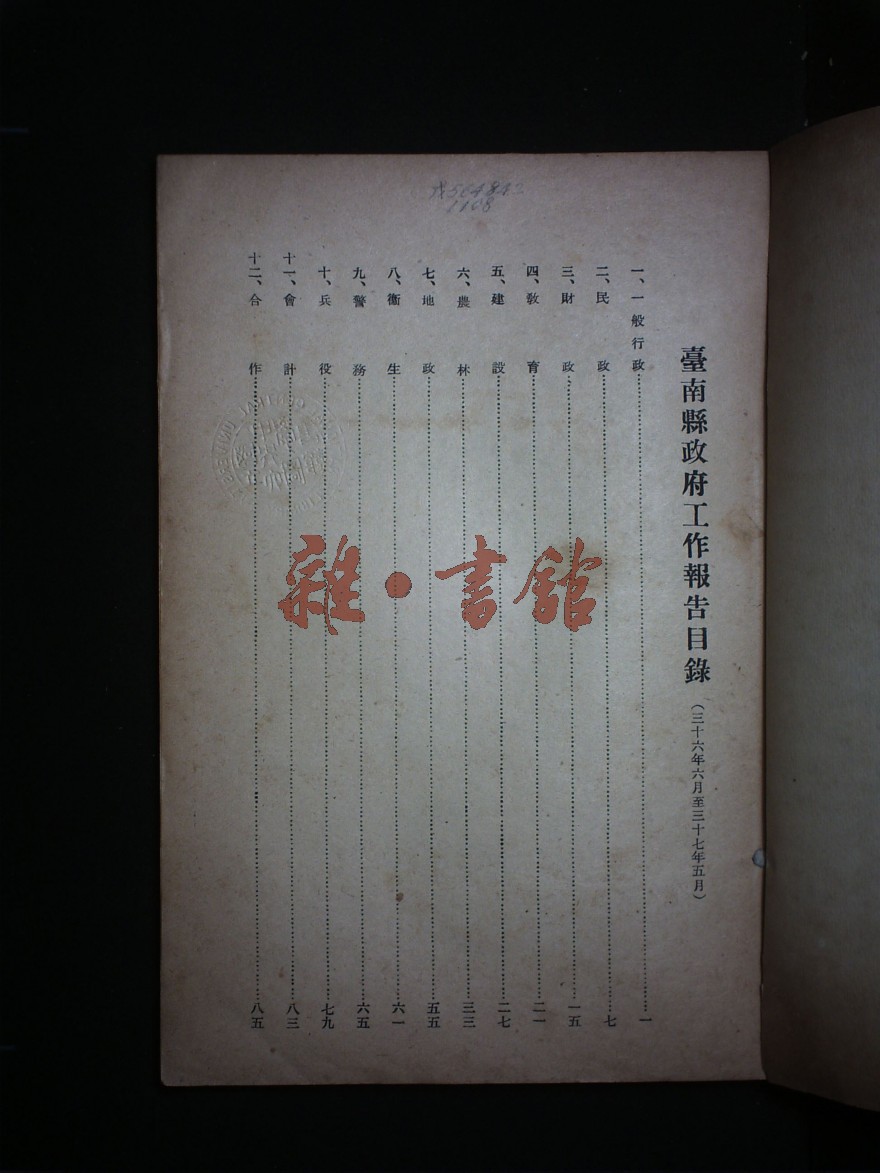 臺南縣政府工作報告目錄（三十六年六月至三十七年五月）
一、一般行政……一
二、民政……七
三、財政……一五
四、教育……二一
五、建設……二七
六、農林……三三
七、地政……五五
八、衞生……六一
九、警務……六五
十、兵役……七九
十一、會計……八三
十二、合作……八五
雜·書館